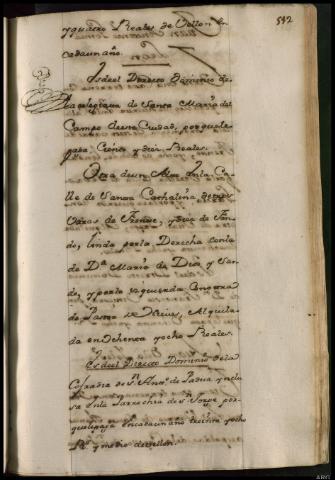 592
y quatro Reales de Vellon en
cada un año.
Es del Directo Dominio de
la colegiata de Santa Maria del
Campo de esta Ciudad, por que le
paga Ciento y diez Reales.
Otra de un Alto en la Ca
lle de Santa Cathalina de tres
Varas de Frente, y diez de Fon
do, linda por la Derecha con la
de Dª Maria de Dios y San
de, y por la izquierda con otra
de Alquila
da en ochenta y ocho Reales.
Es del Directo Dominio de la
Cofradia de Sn Antº de Padua ynclu
sa en la Parrochia de Sn Jorge por
que le paga en cada un año treinta y ocho
Rs y medio de vellon.